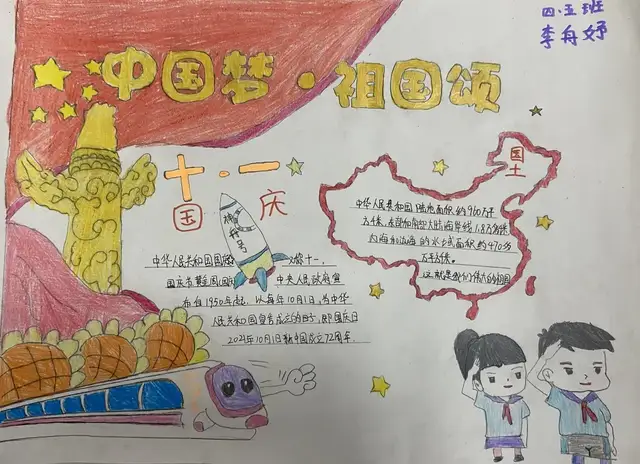 四.五班
李舟妤
中国梦·祖国颂
十·一
国庆
国土
中华人民共和国陆地面积约960万平
方千米,东部和南部大陆海岸线1.8万多千米
内海和边海的水域面积约470多
万平方千米。
这就是我们伟大的祖国
中华人民共和国国
国庆节
中央人民政府宣
布自1950年起,以每年10月1日,为中华
人民共和国宣告成立的日子,即国庆日
2021年10月1日新中国成立72周年.